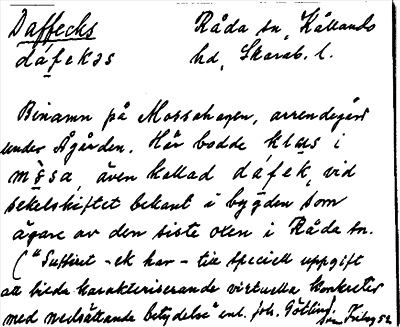 Daffecks Råda sn, Kållands
dáfekəs hd, Skarab. l.
Binamn på Mossahagen, arrendegård
under Ågården. Här bodde klas i
mọsa även kallad dáfek, vid
sekelskiftet bekant i bygden som
ägare av den siste oxen i Råda sn.
("Suffixet -ek har - till speciell uppgift
att bilda karakteriserande virtuella konkreter
med nedsättande betydelse" enl. Joh. Götlind,